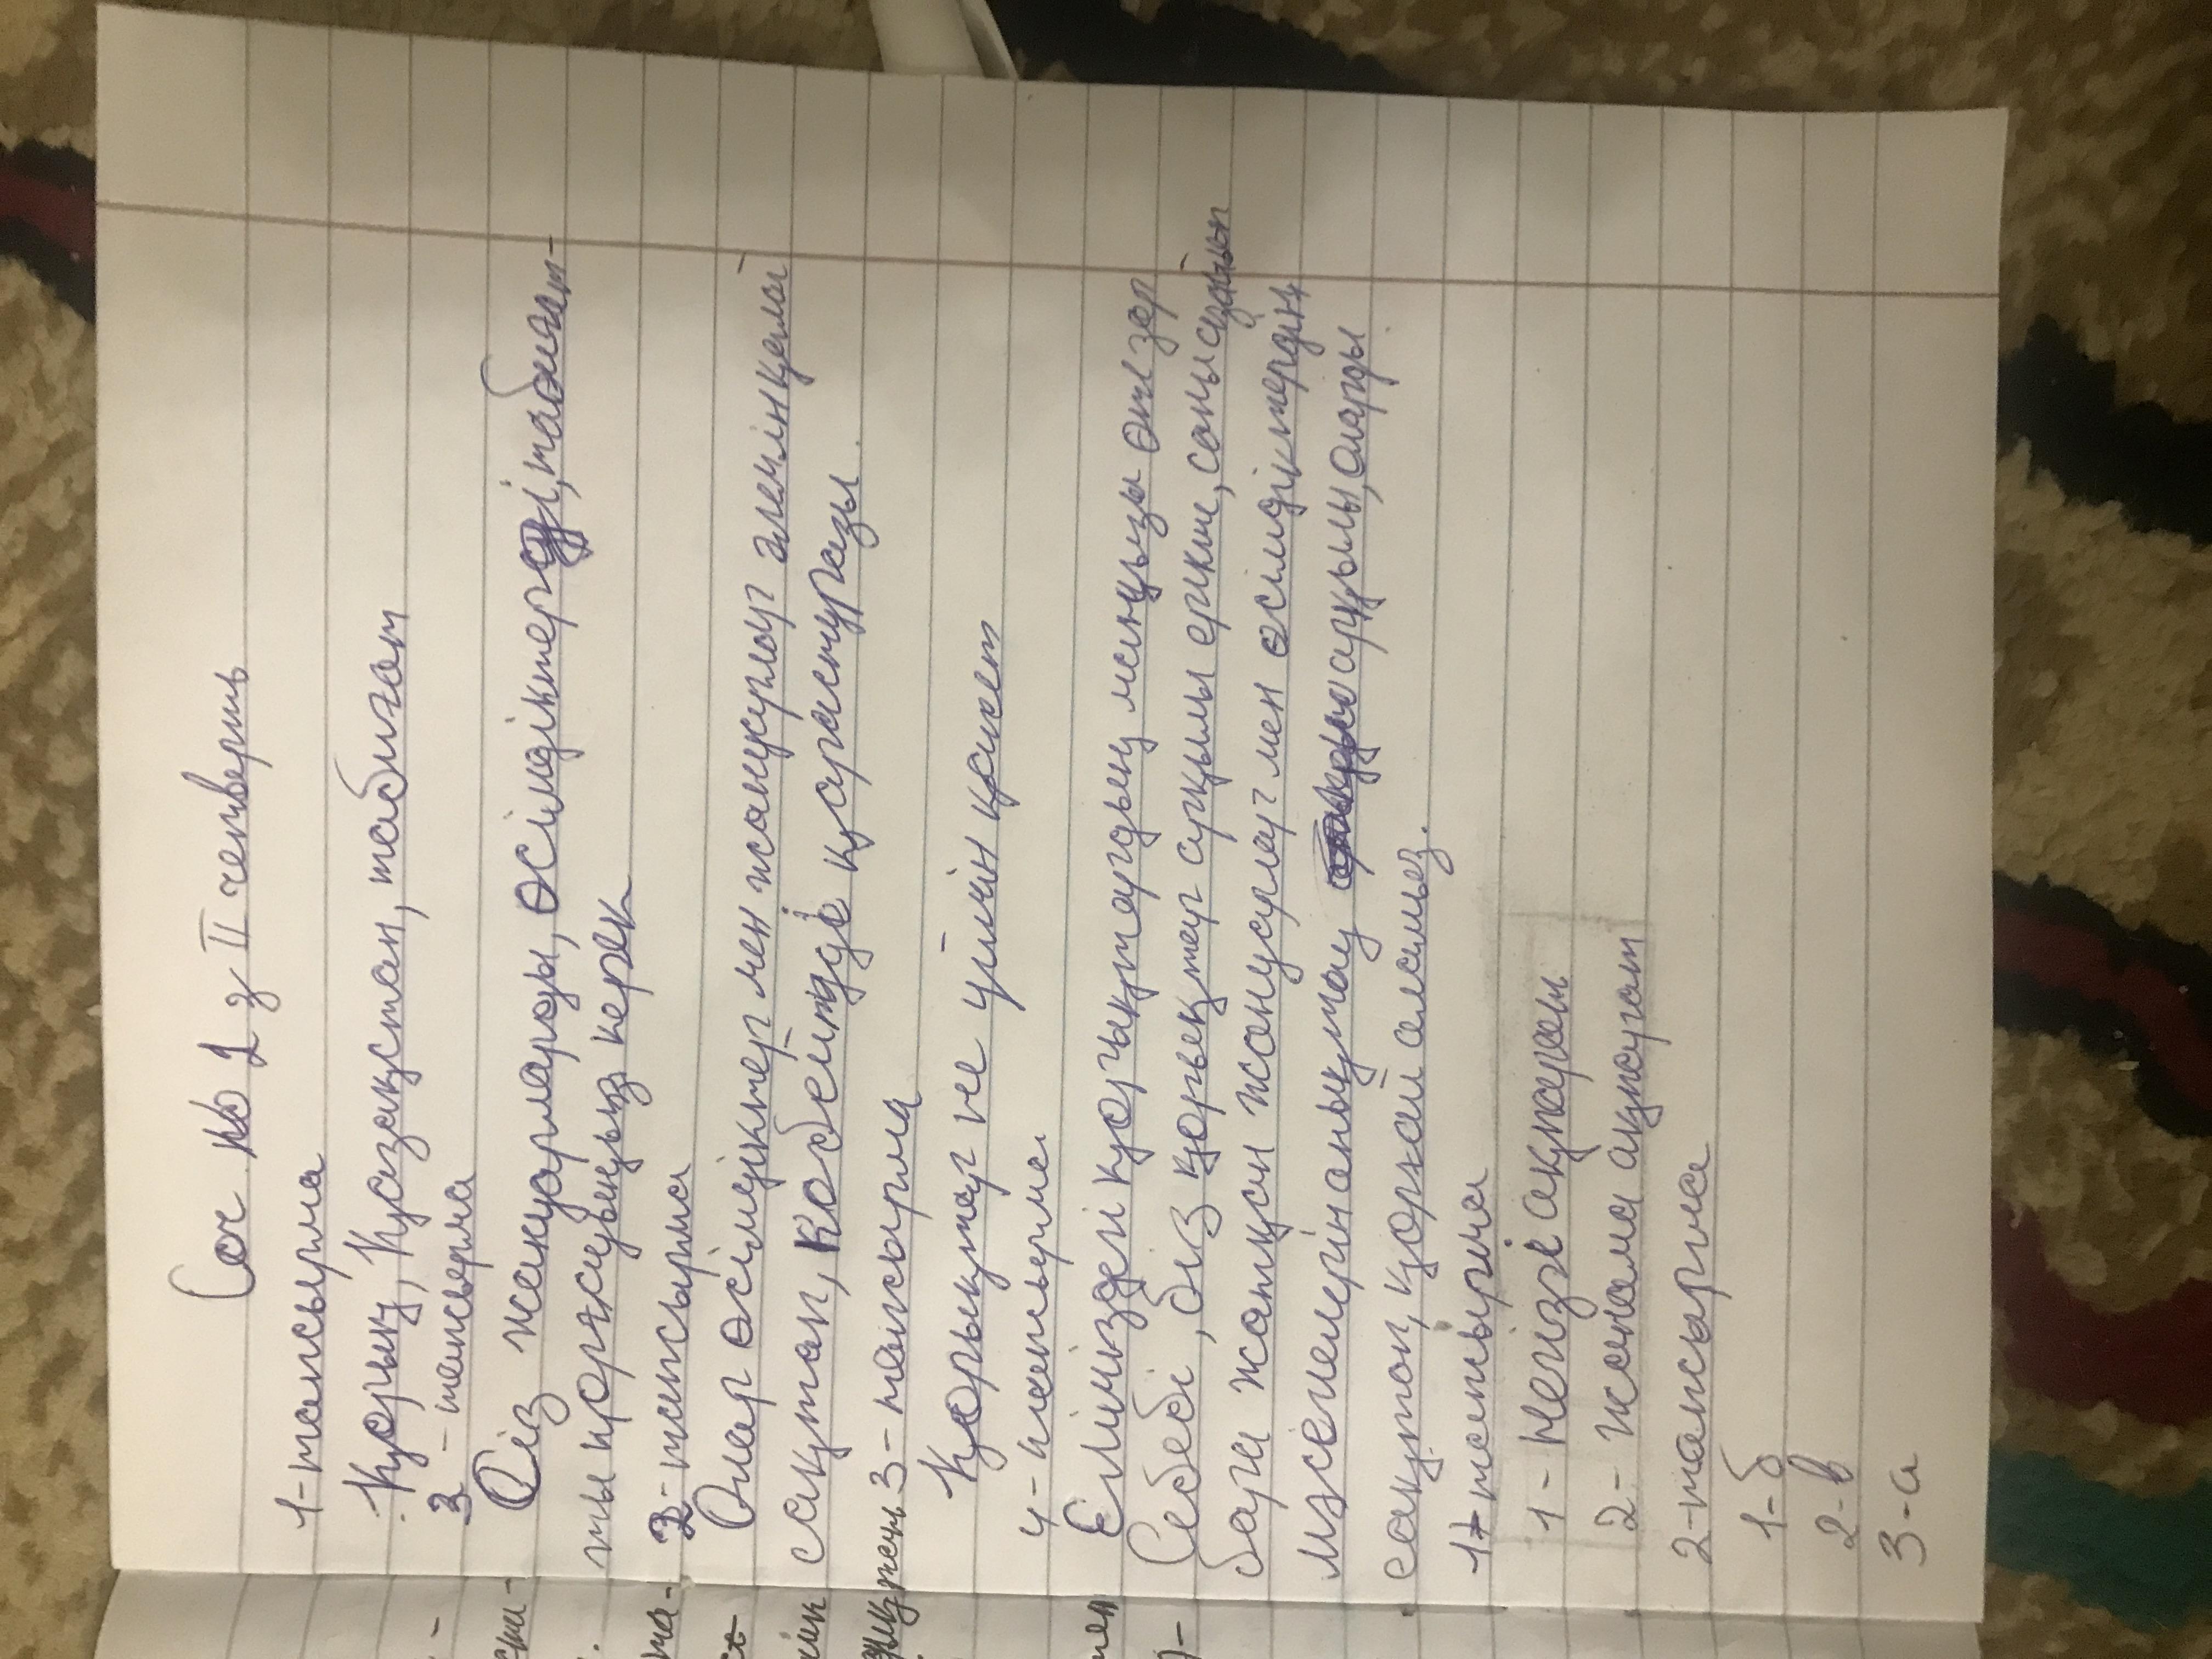 Соч № 2 з II четверть
1-тапсырма
Қорық, Қазақстан, табиғат
3-тапсырма
Біз жануарларды, өсімдіктерді, табиғат-
ты қорғауымыз керек
2-тапсырма
Олар өсімдіктер мен жануарлар әлемін қалай
сақтап, көбейтуді қарастырады.
3-тапсырма
Қорықтар не үшін қажет
4-тапсырма
Еліміздегі қорықтардың маңызы өте зор
Себебі, біз қорықтар арқылы ерікше, саны азайып
бара жатқан жануарлар мен өсімдіктердің
мәселелерін анықтау арқылы, оларды
сақтап, қорғай аламыз.
1-тапсырма
1- Негізгі ақпарат
2- жанама ақпарат
2-тапсырма
1-б
2-в
3-а